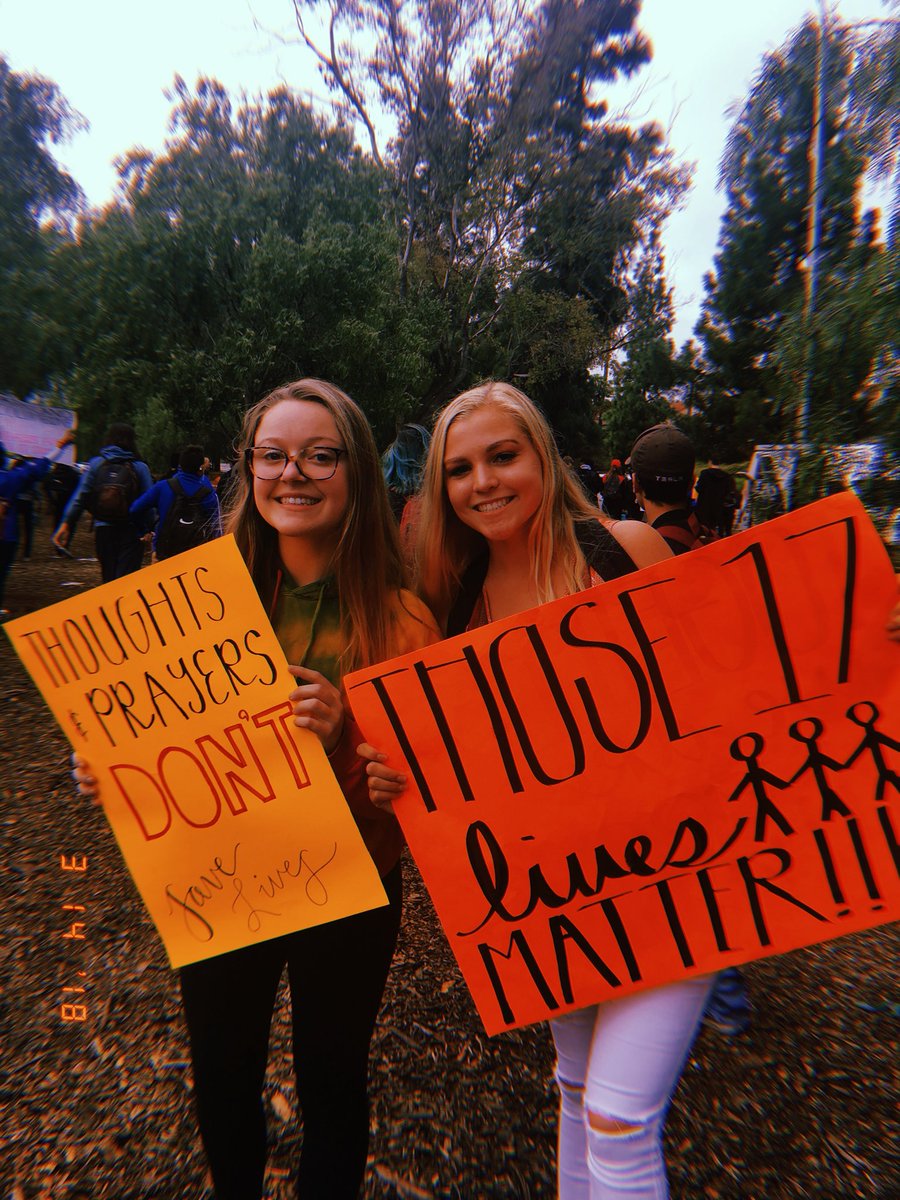 THOUGHTS
& PRAYERS
DON'T
Save
Lives
THOSE 17
lives
MATTER!!!!
3 14 '18